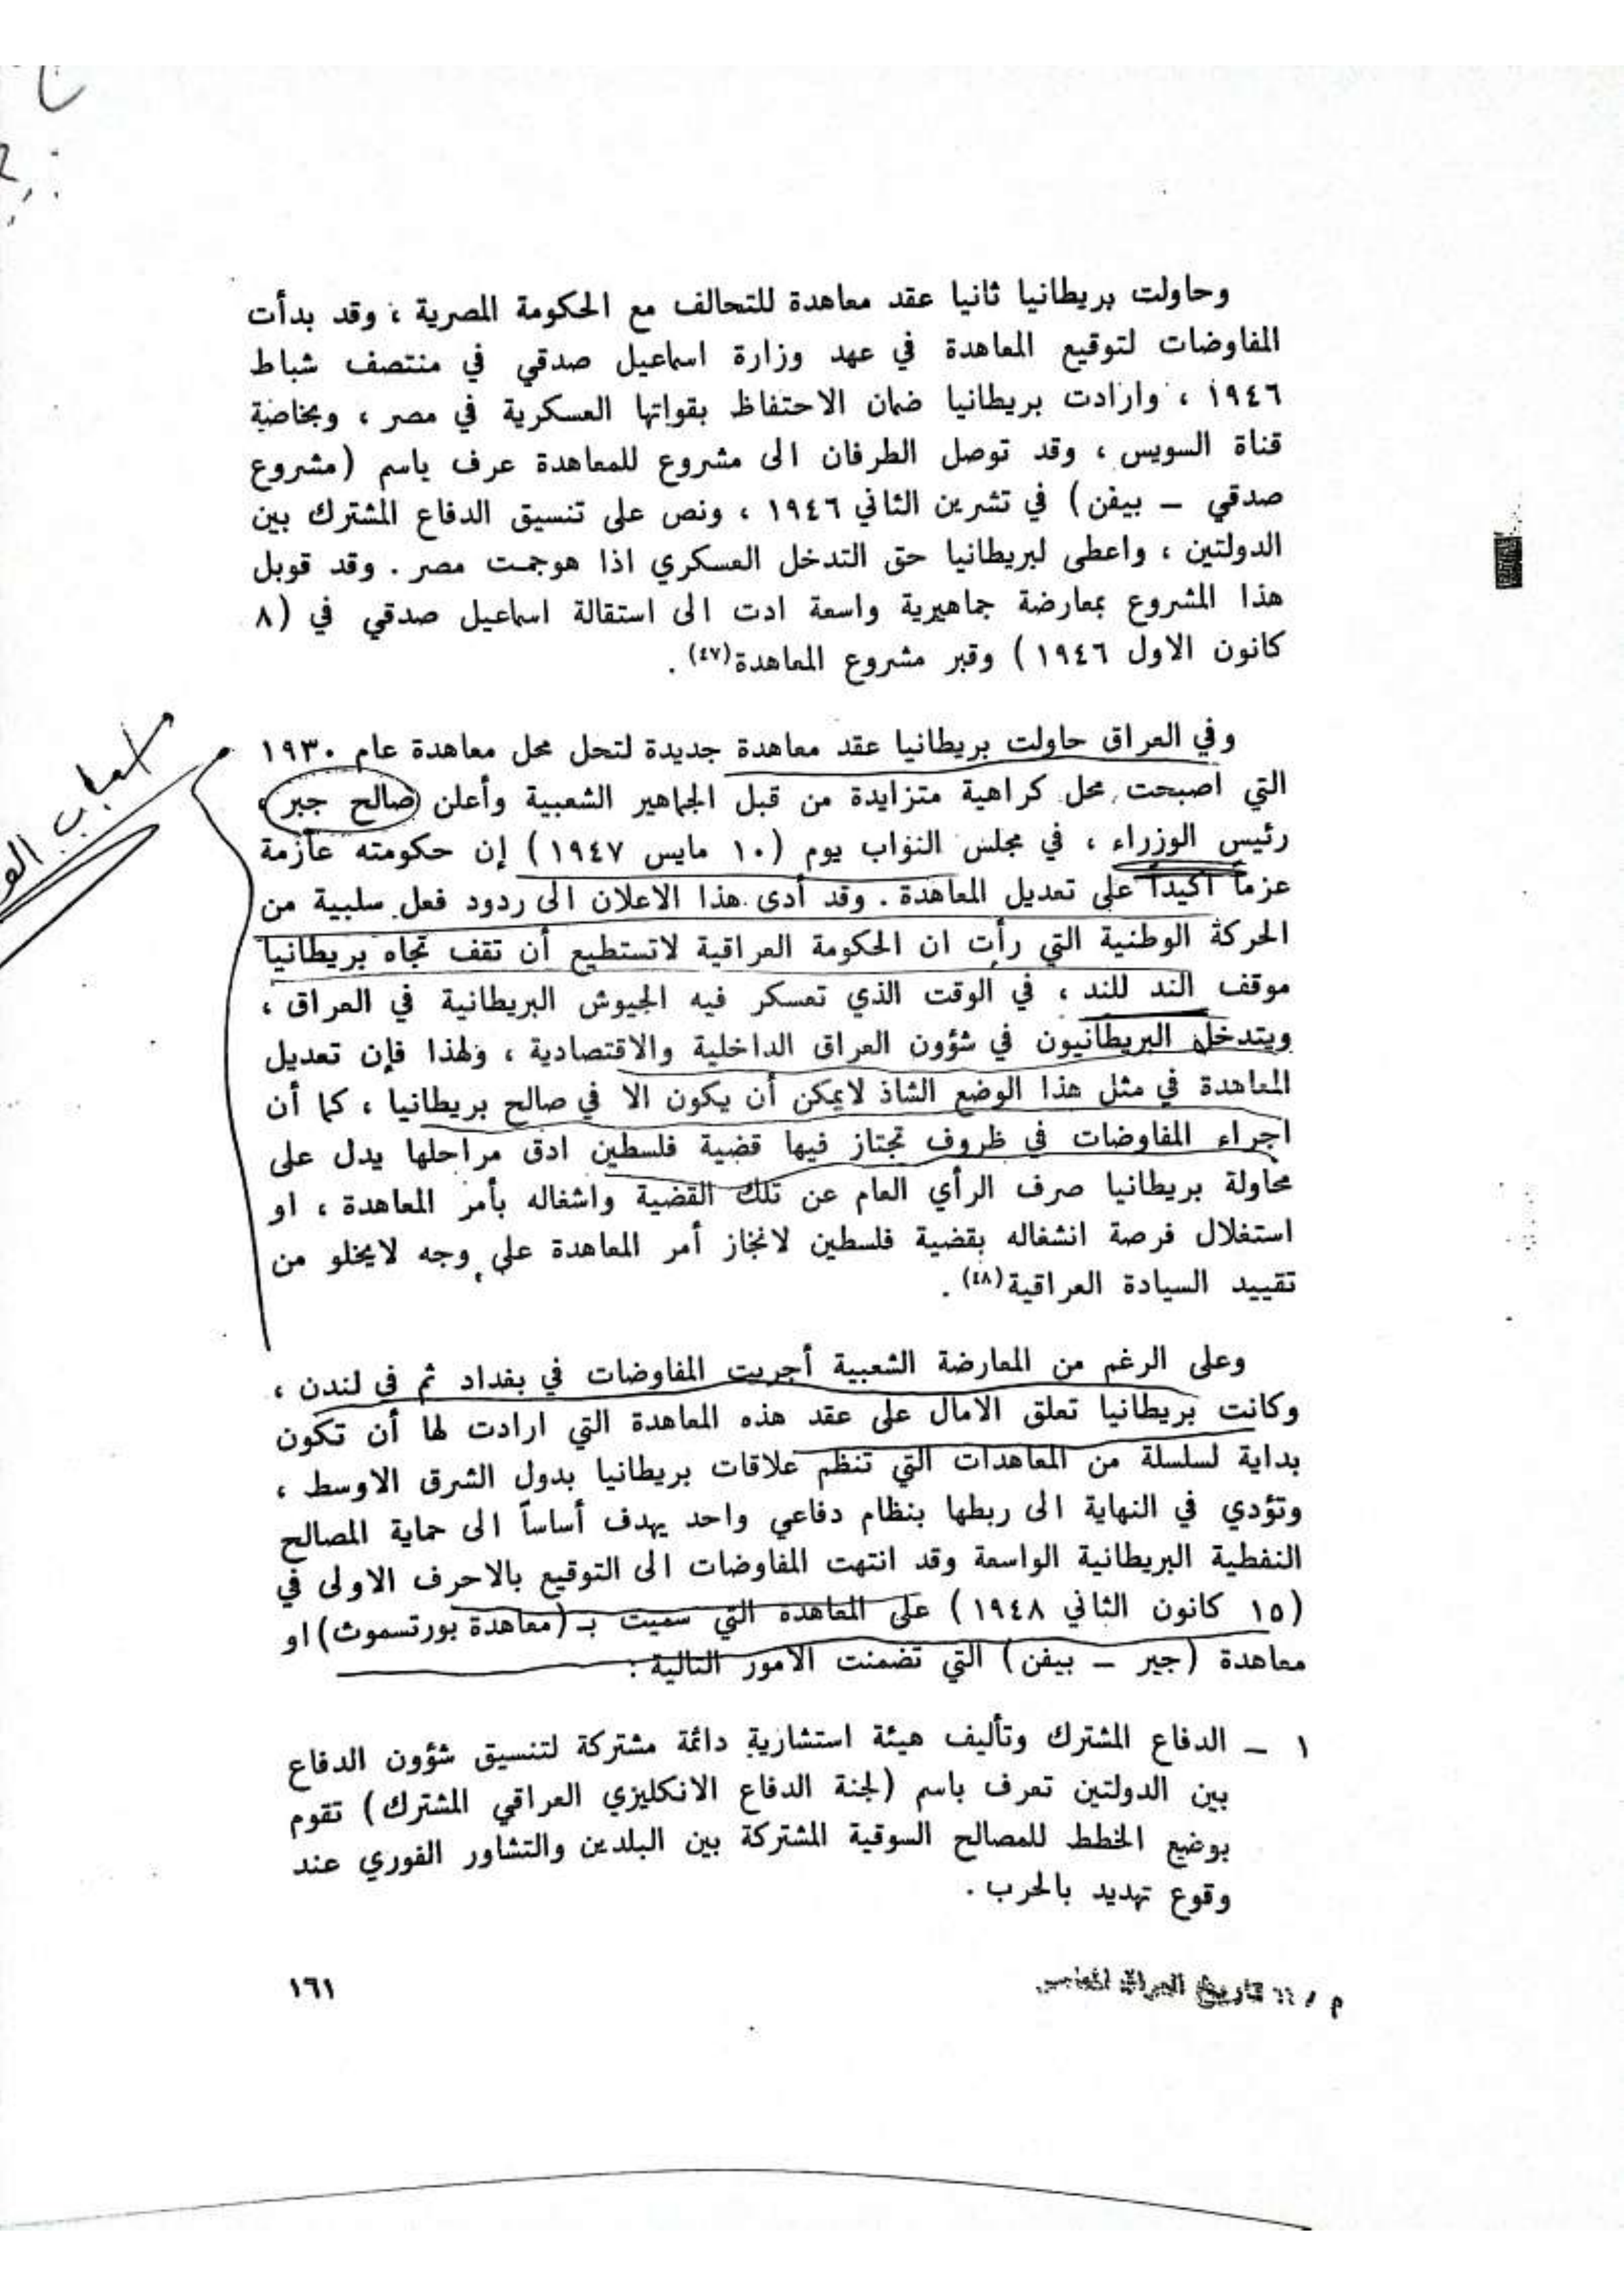 وحاولت بريطانيا ثانيا عقد معاهدة للتحالف مع الحكومة المصرية ، وقد بدأت
المفاوضات لتوقيع المعاهدة في عهد وزارة اسماعيل صدقي في منتصف شباط
١٩٤٦ ، وارادت بريطانيا ضمان الاحتفاظ بقواتها العسكرية في مصر ، وبخاصة
قناة السويس ، وقد توصل الطرفان الى مشروع للمعاهدة عرف باسم (مشروع
صدقي ــ بيفن) في تشرين الثاني ١٩٤٦ ، ونص على تنسيق الدفاع المشترك بين
الدولتين ، واعطى لبريطانيا حق التدخل العسكري اذا هوجمت مصر . وقد قوبل
هذا المشروع بمعارضة جماهيرية واسعة ادت الى استقالة اسماعيل صدقي في (٨
كانون الاول ١٩٤٦) وقبر مشروع المعاهدة(٤٧) .
وفي العراق حاولت بريطانيا عقد معاهدة جديدة لتحل محل معاهدة عام ١٩٣٠
التي اصبحت محل كراهية متزايدة من قبل الجماهير الشعبية وأعلن صالح جبر ،
رئيس الوزراء ، في مجلس النواب يوم (١٠ مايس ١٩٤٧) إن حكومته عازمة
عزماً أكيداً على تعديل المعاهدة . وقد أدى هذا الاعلان الى ردود فعل سلبية من
الحركة الوطنية التي رأت ان الحكومة العراقية لاتستطيع أن تقف تجاه بريطانيا
موقف الند للند ، في الوقت الذي تعسكر فيه الجيوش البريطانية في العراق ،
ويتدخل البريطانيون في شؤون العراق الداخلية والاقتصادية ، ولهذا فإن تعديل
المعاهدة في مثل هذا الوضع الشاذ لايمكن أن يكون الا في صالح بريطانيا ، كما أن
اجراء المفاوضات في ظروف تجتاز فيها قضية فلسطين ادق مراحلها يدل على
محاولة بريطانيا صرف الرأي العام عن تلك القضية واشغاله بأمر المعاهدة ، او
استغلال فرصة انشغاله بقضية فلسطين لانجاز أمر المعاهدة على وجه لايخلو من
تقييد السيادة العراقية(٤٨) .
وعلى الرغم من المعارضة الشعبية أجريت المفاوضات في بغداد ثم في لندن ،
وكانت بريطانيا تعلق الامال على عقد هذه المعاهدة التي ارادت لها أن تكون
بداية لسلسلة من المعاهدات التي تنظم علاقات بريطانيا بدول الشرق الاوسط ،
وتؤدي في النهاية الى ربطها بنظام دفاعي واحد يهدف أساساً الى حماية المصالح
النفطية البريطانية الواسعة وقد انتهت المفاوضات الى التوقيع بالاحرف الاولى في
(١٥ كانون الثاني ١٩٤٨) على المعاهدة التي سميت بـ (معاهدة بورتسموث) او
معاهدة (جبر ــ بيفن) التي تضمنت الامور التالية :
١ ــ الدفاع المشترك وتأليف هيئة استشارية دائمة مشتركة لتنسيق شؤون الدفاع
بين الدولتين تعرف باسم (لجنة الدفاع الانكليزي العراقي المشترك) تقوم
بوضع الخطط للمصالح السوقية المشتركة بين البلدين والتشاور الفوري عند
وقوع تهديد بالحرب .
١٦١